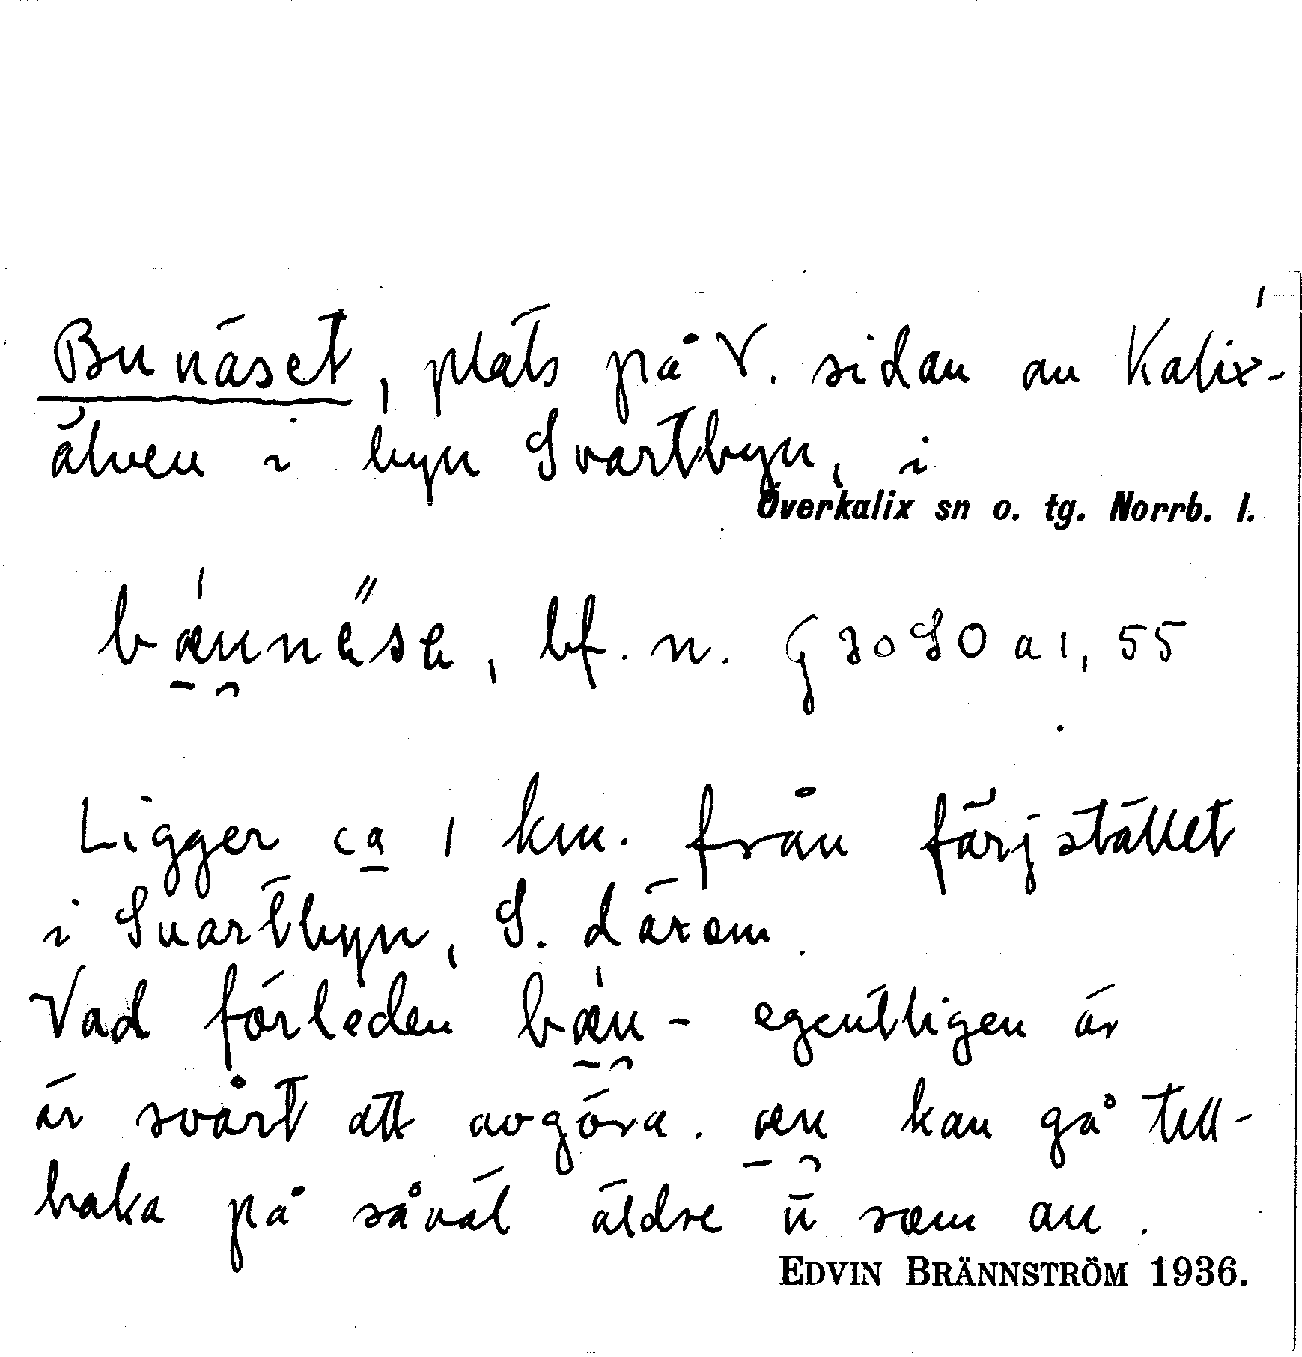 Bunäset, plats på V. sidan au Kalix-
älven i byn Svartbyn, i
Överkalix sn o. tg. Norrb. l.
bf. n.
Ligger ca 1 km. från färjstället
i Svartbyn, S. därom.
Vad förleden bæu- egentligen är
är svårt att avgöra. æu kan gå till-
baka på såväl äldre ū som au.
EDVIN BRÄNNSTRÖM 1936.